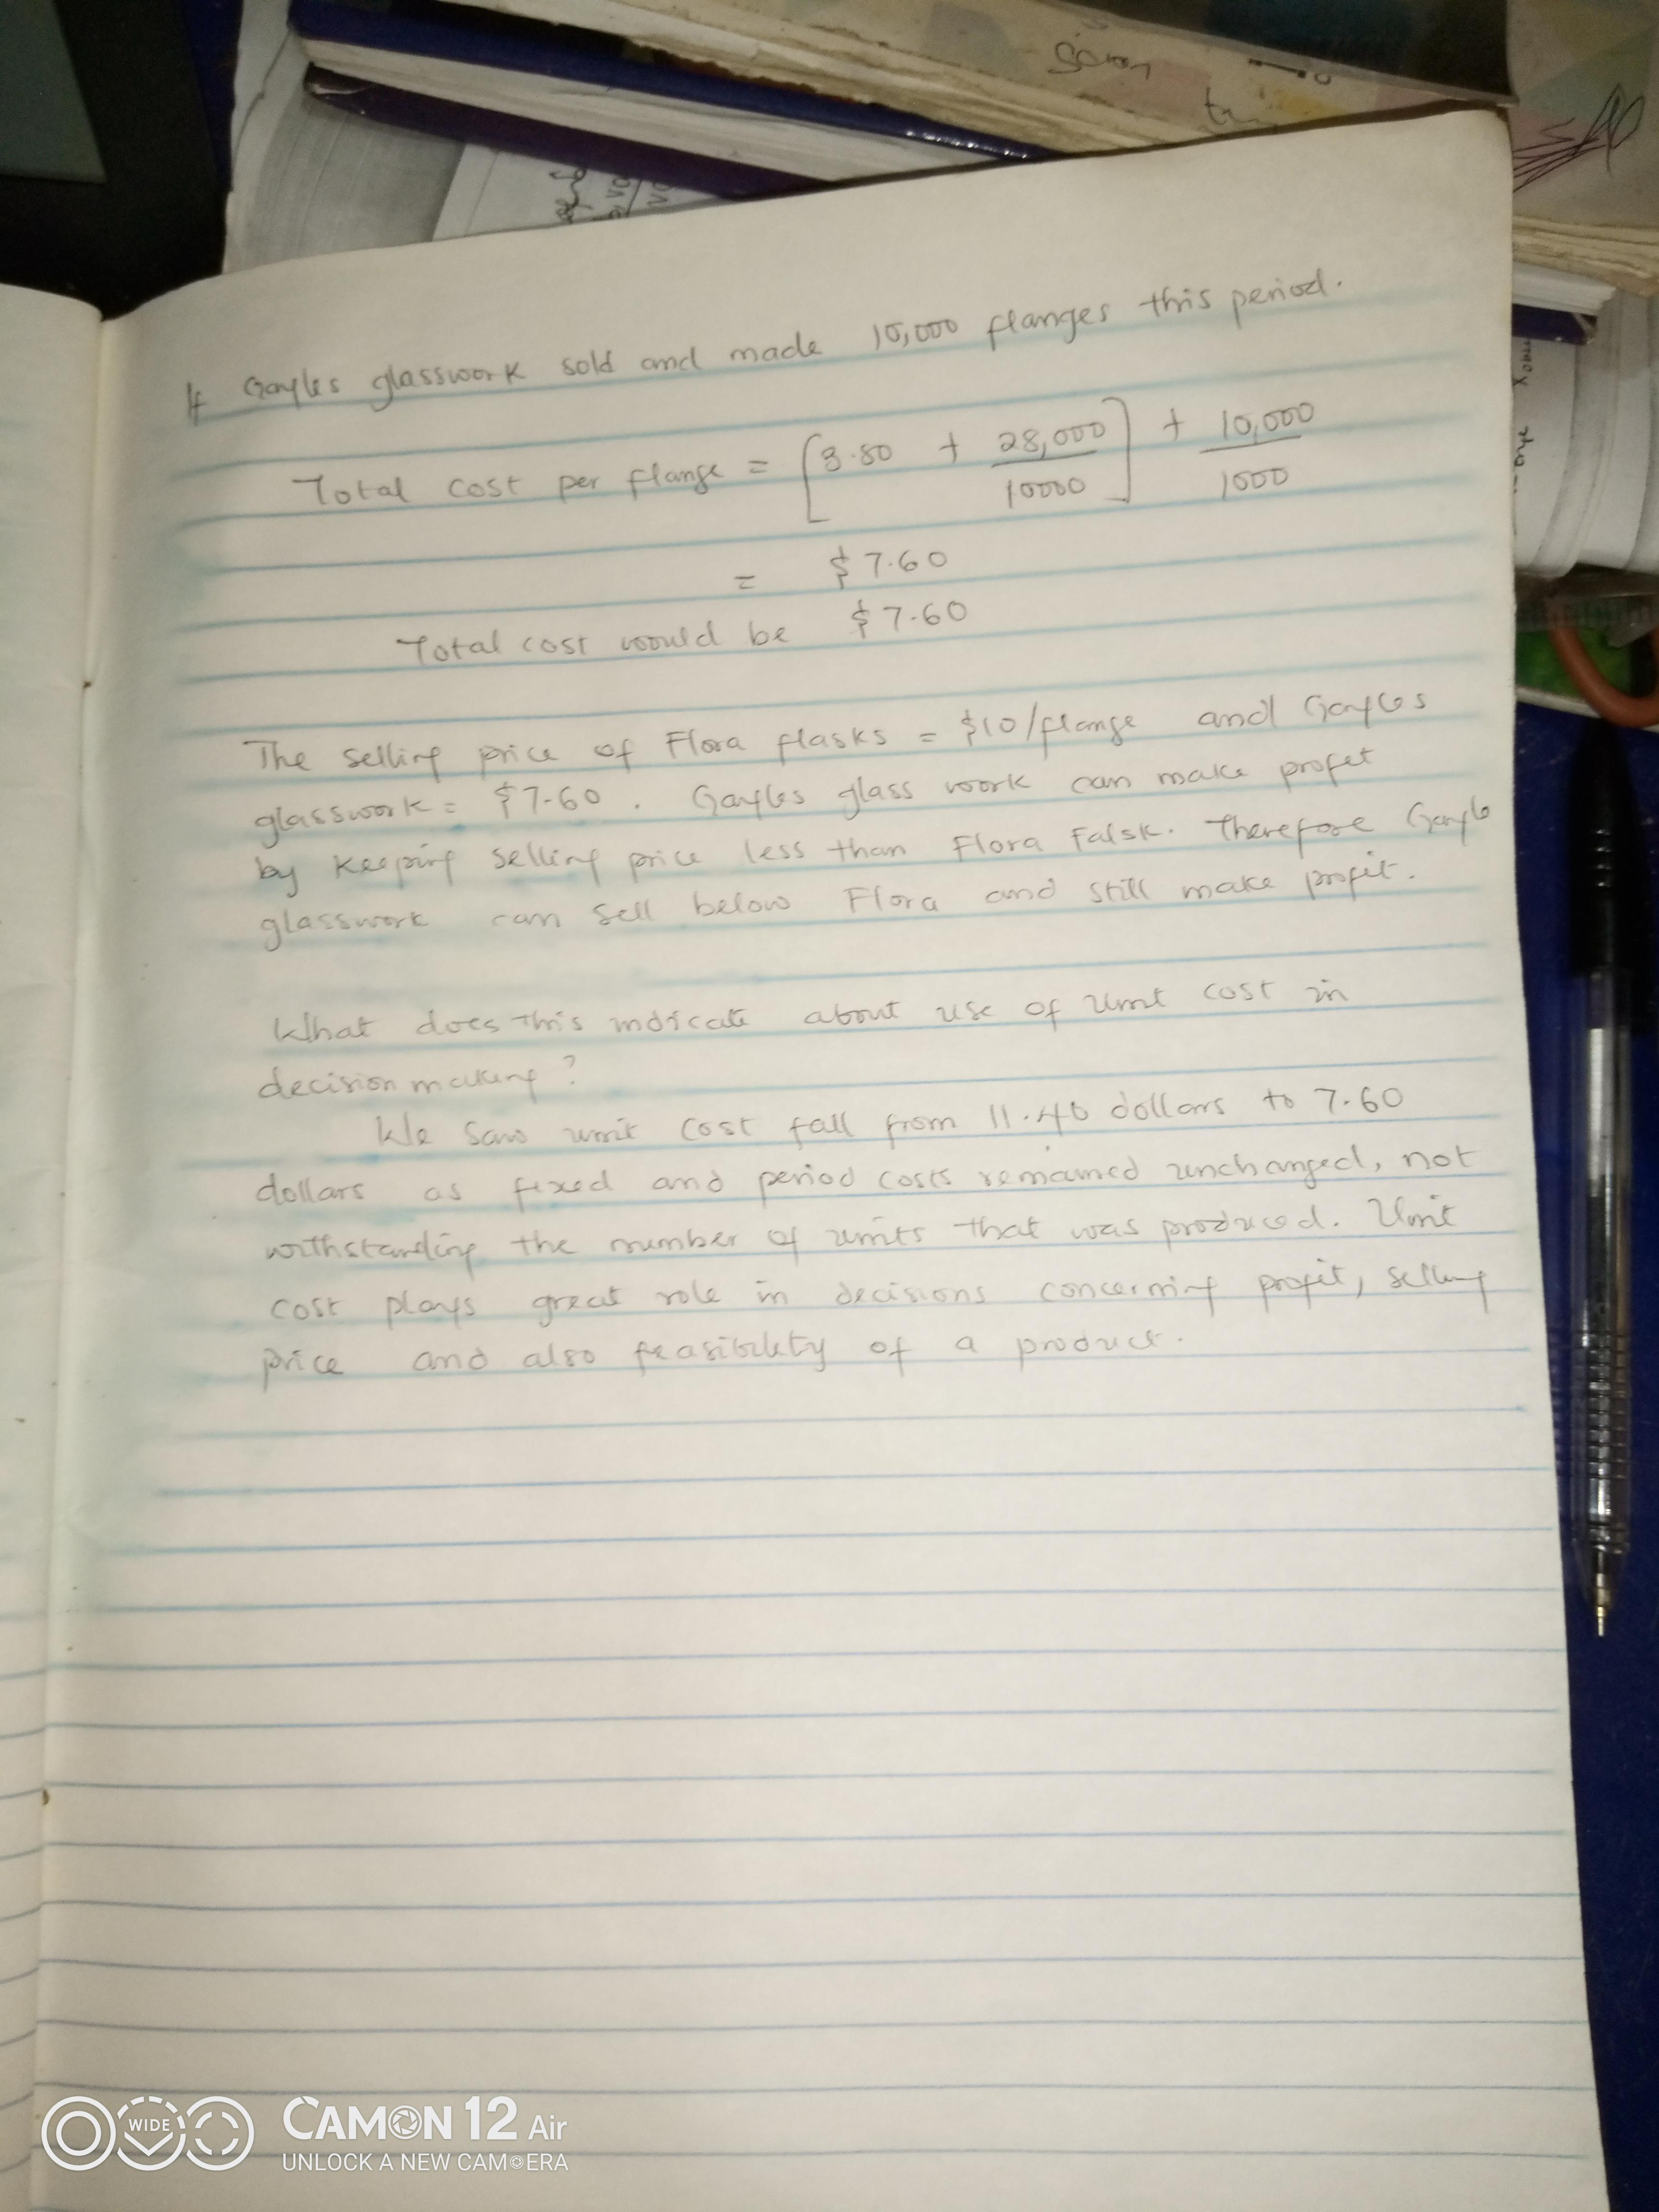 Scron
If Gayles glasswork sold and made 10,000 flanges this period.
Total cost per flange = [3.80 + 28,000/10000] + 10,000/1000
= $7.60
Total cost would be $7.60
The selling price of Flora flasks = $10/flange and Gayles
glasswork = $7.60. Gayles glass work can make profet
by keeping selling price less than Flora Falsk. Therefore Gayle
glasswork can sell below Flora and still make profit.
What does this indicate about use of Unit cost in
decision making?
We saw unit cost fall from 11.40 dollars to 7.60
dollars as fixed and period costs remained unchanged, not
withstanding the number of units that was produced. Unit
cost plays great role in decisions concerning profit, selling
price and also feasibility of a product.
WIDE
CAMON 12 Air
UNLOCK A NEW CAMERA